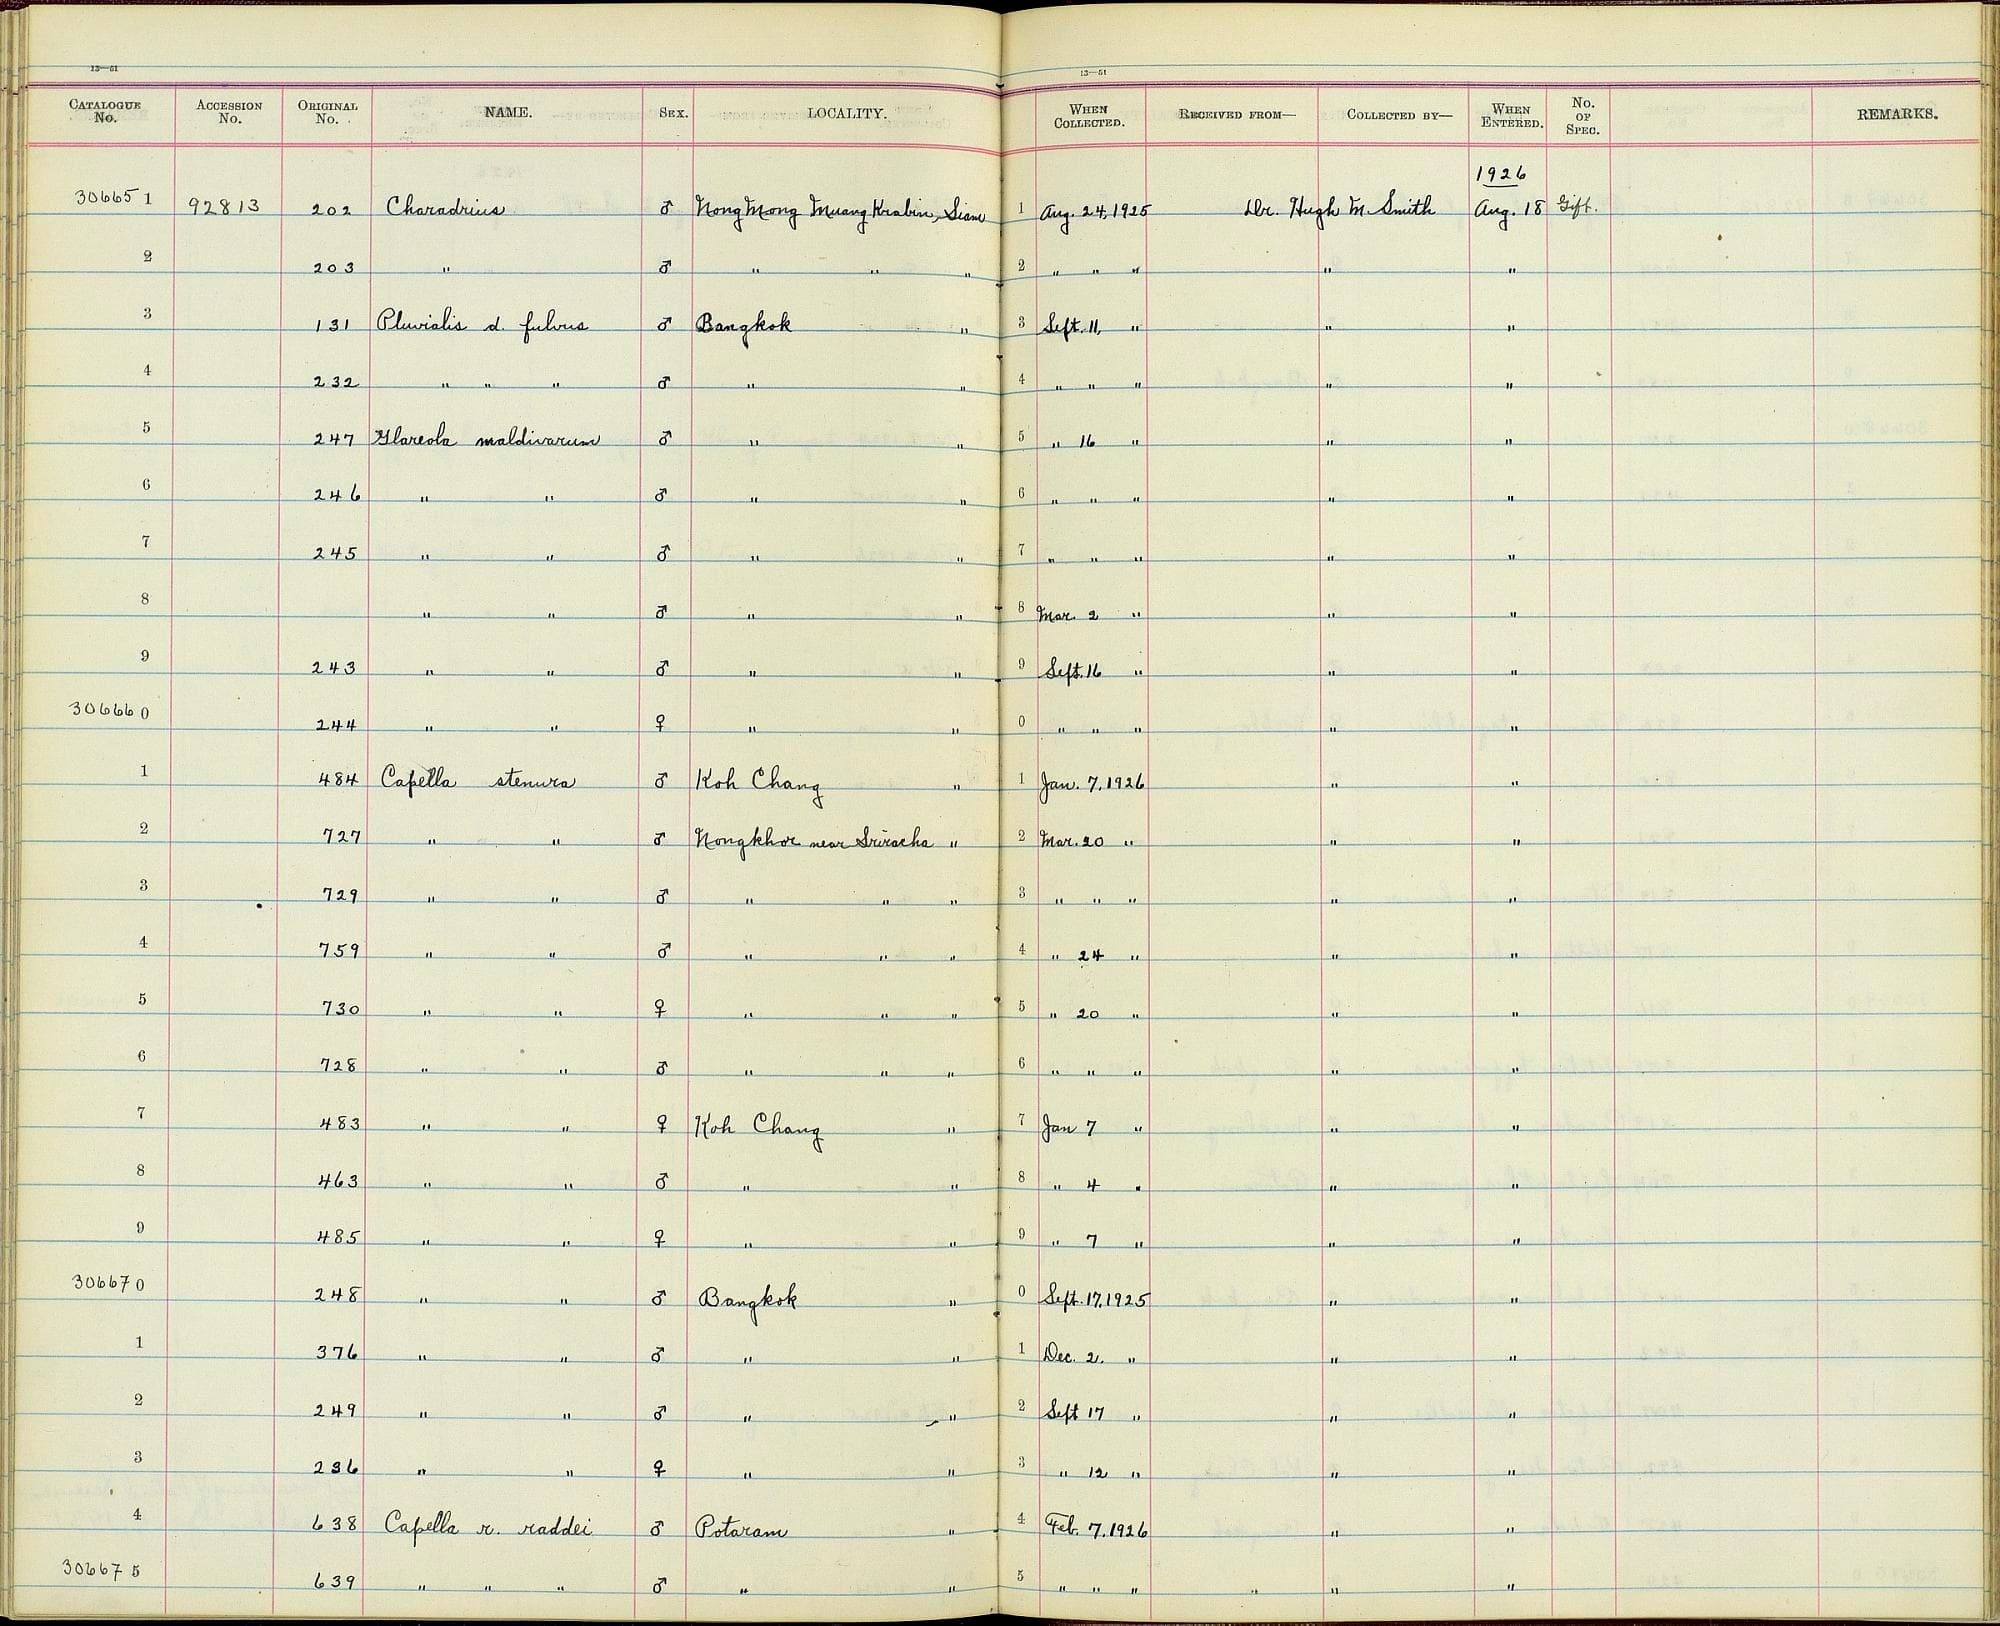 13—51 13—51
CATALOGUE No. ACCESSION No. ORIGINAL No. NAME. SEX. LOCALITY. WHEN COLLECTED. RECEIVED FROM— COLLECTED BY— WHEN ENTERED. No. OF SPEC. REMARKS.
1926
306651 92813 202 Charadrius ♂ Nong Mong Muang Krabin, Siam 1 Aug. 24, 1925 Dr. Hugh M. Smith Aug. 18 Gift.
2 203 " ♂ " " " 2 " " " " "
3 131 Pluvialis d. fulvus ♂ Bangkok " 3 Sept. 11, " " "
4 232 " " " ♂ " " 4 " " " " "
5 247 Glareola maldivarum ♂ " " 5 " 16 " " "
6 246 " " ♂ " " 6 " " " " "
7 245 " " ♂ " " 7 " " " " "
8 " " ♂ " " 8 Mar. 2 " " "
9 243 " " ♂ " " 9 Sept. 16 " " "
306660 244 " " ♀ " " 0 " " " " "
1 484 Capella stenura ♂ Koh Chang " 1 Jan. 7, 1926 " "
2 727 " " ♂ Nongkhor near Sriracha " 2 Mar. 20 " " "
3 729 " " ♂ " " " 3 " " " " "
4 759 " " ♂ " " " 4 " 24 " " "
5 730 " " ♀ " " " 5 " 20 " " "
6 728 " " ♂ " " " 6 " " " " "
7 483 " " ♀ Koh Chang " 7 Jan 7 " " "
8 463 " " ♂ " " 8 " 4 " " "
9 485 " " ♀ " " 9 " 7 " " "
306670 248 " " ♂ Bangkok " 0 Sept. 17, 1925 " "
1 376 " " ♂ " " 1 Dec. 2. " " "
2 249 " " ♂ " " 2 Sept 17 " " "
3 236 " " ♀ " " 3 " 12 " " "
4 638 Capella r. raddei ♂ Potaram " 4 Feb. 7, 1926 " "
306675 639 " " " ♂ " " 5 " " " " " "